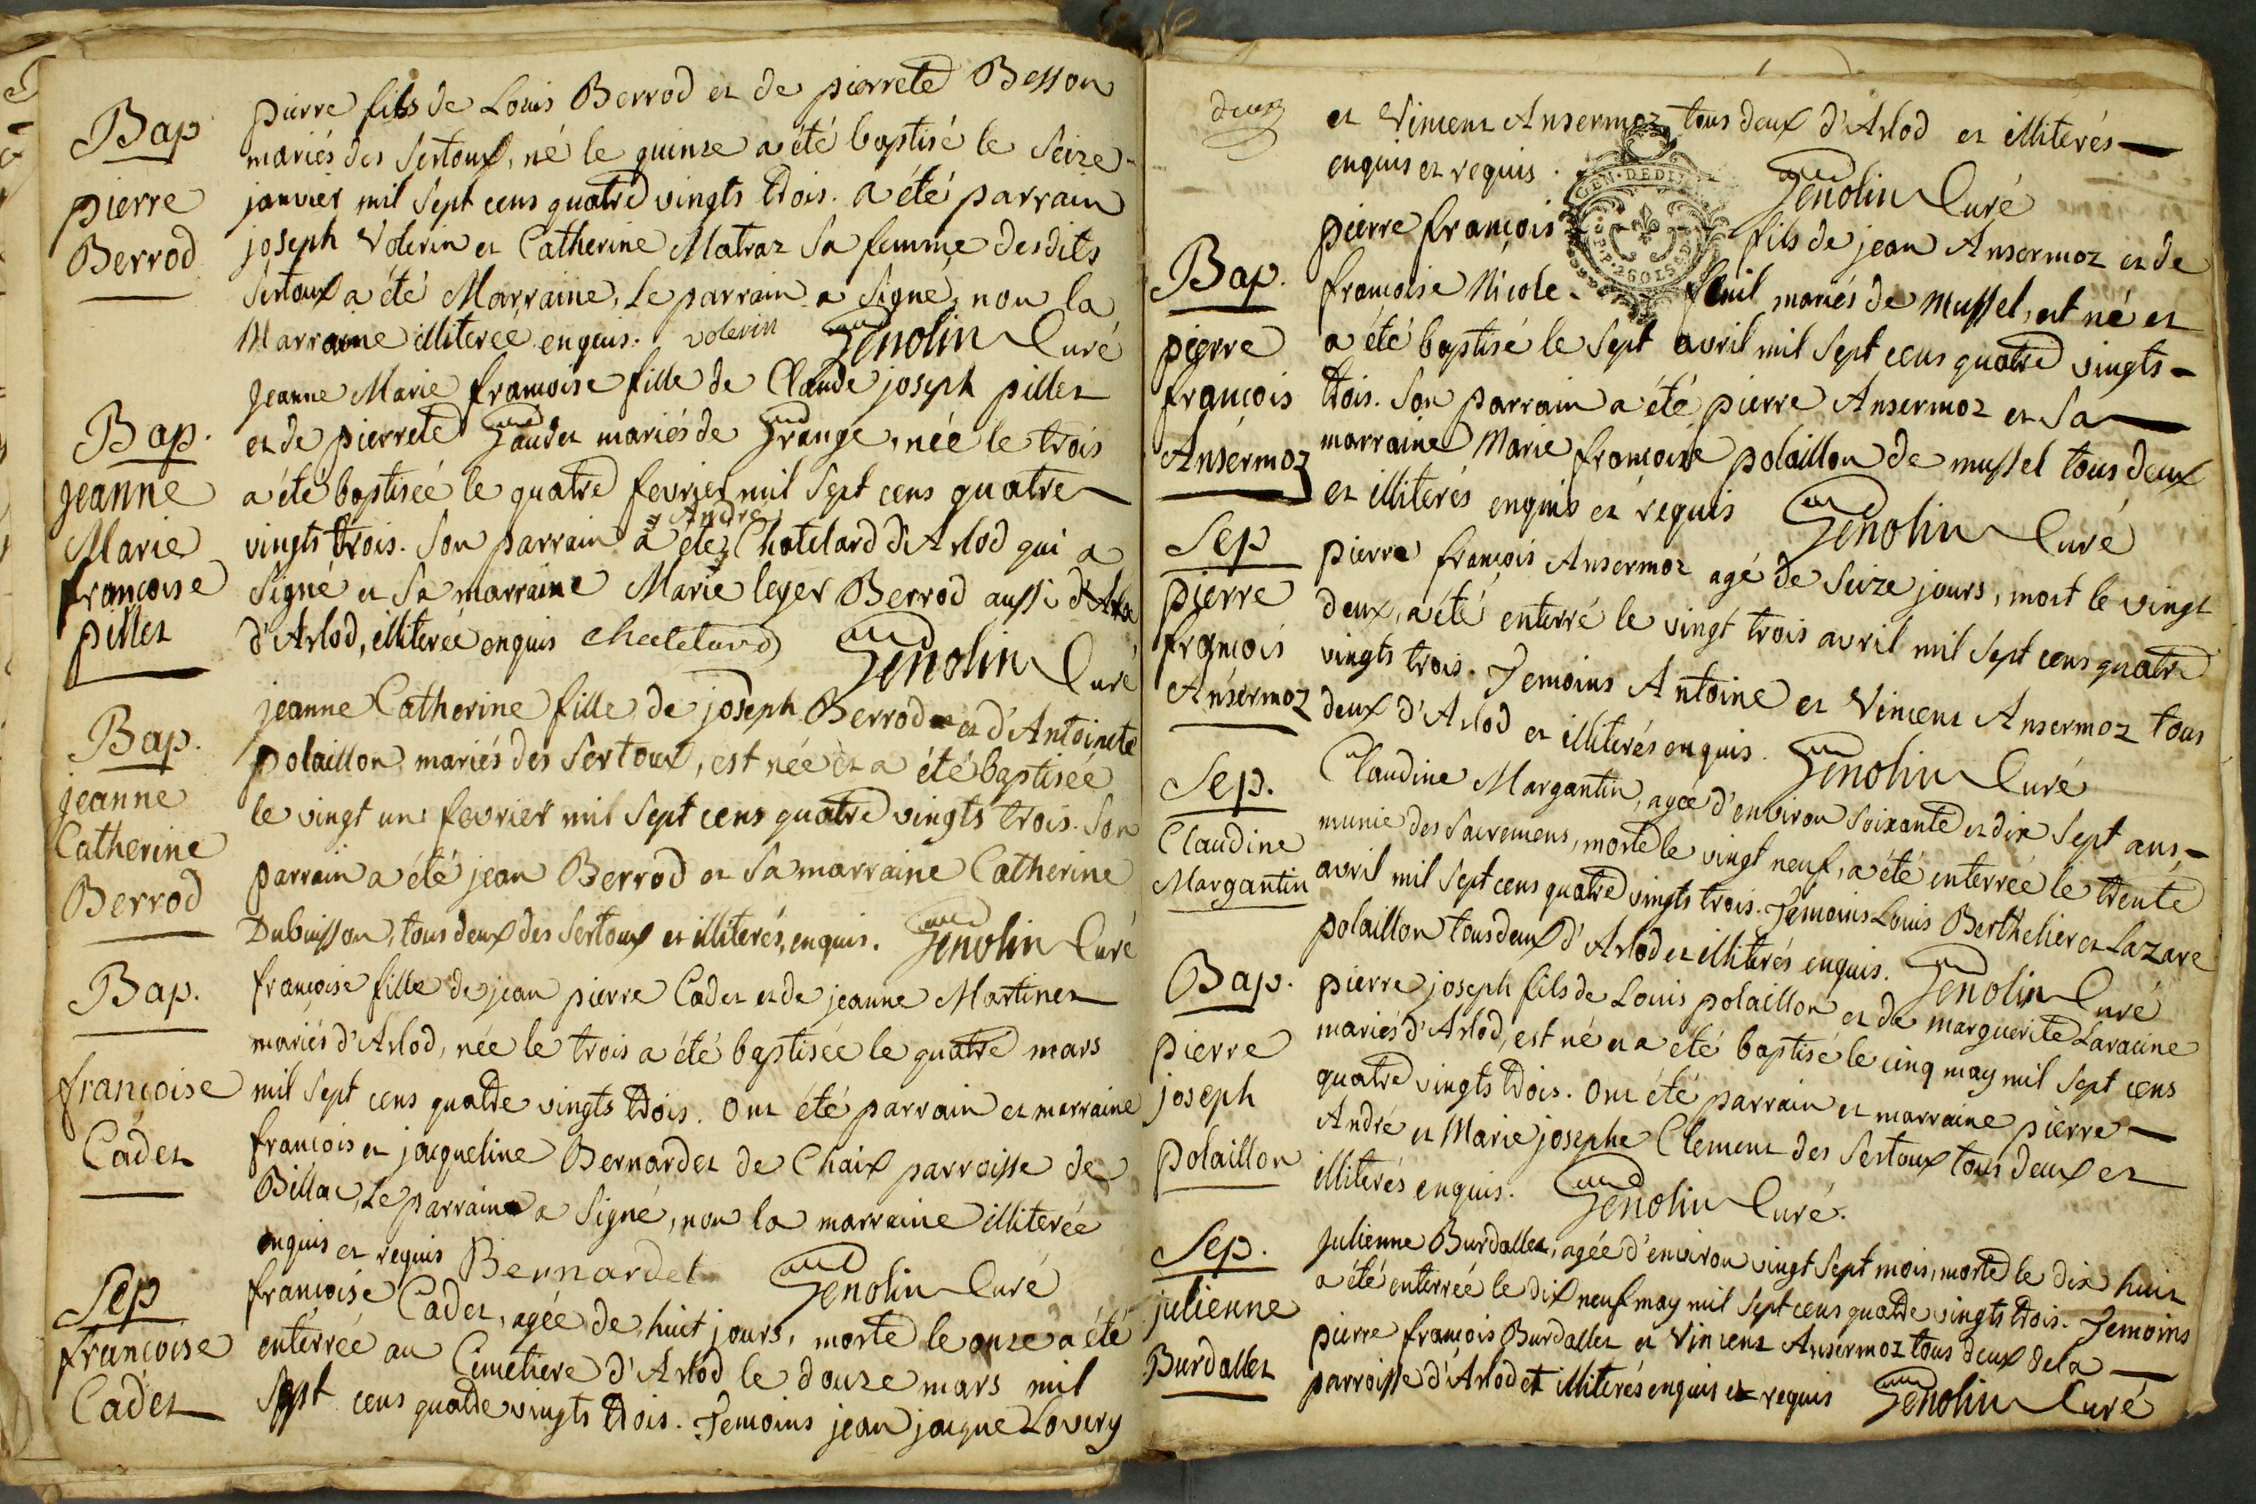 Bap
pierre
Berrod
pierre fils de Louis Berrod et de pierrete Besson
mariés des Sertoux, né le quinze a été baptisé le Seize
janvier mil Sept cens quatre vingts trois. a été parrain
joseph Volerin et Catherine Matraz Sa femme desdits
Sertoux a été Marraine, Le parrain a Signé, non la
Marraine illiterée enquis. volerin Genolin Curé
Bap.
jeanne
Marie
françoise
pillet
Jeanne Marie françoise fille de Claude joseph pillet
et de pierrete Gaudet mariés de Grange, née le trois
a été baptisée le quatre fevrier mil Sept cens quatre
vingts trois. Son parrain a été André Chatelard d'Arlod qui a
Signé et Sa marraine Marie leger Berrod aussi
d'Arlod, illiterée enquis Chatelard Genolin Curé
Bap.
jeanne
Catherine
Berrod
jeanne Catherine fille de joseph Berrod et d'Antoinete
polaillon mariés des Sertoux, est née et a été baptisée
le vingt un fevrier mil Sept cens quatre vingts trois. Son
parrain a été jean Berrod et Sa marraine Catherine
Dubuisson, tous deux des Sertoux et illiterés, enquis. Genolin Curé
Bap.
françoise
Cadet
françoise fille de jean pierre Cadet et de jeanne Martinet
mariés d'Arlod, née le trois a été baptisée le quatre mars
mil Sept cens quatre vingts trois. Ont été parrain et marraine
francois et jacqueline Bernardet de Chaix parroisse de
Billac, Le parrain a Signé, non la marraine illiterée
enquis et requis Bernardet Genolin Curé
Sep
françoise
Cadet
françoise Cadet, agée de huit jours, morte le onze a été
enterrée au Cimetiere d'Arlod le douze mars mil
Sept cens quatre vingts trois. Temoins jean jacque Lovery
deux
et Vincent Ansermoz tous deux d'Arlod et illiterés
enquis et requis. Genolin Curé
GEN. DEDI
Bap.
pierre
françois
Ansermoz
pierre françois fils de jean Ansermoz et de
françoise Nicole mariés de Mussel, est né et
a été baptisé le Sept avril mil Sept cens quatre vingts
trois. Son parrain a été pierre Ansermoz et Sa
marraine Marie françoise polaillon de mussel tous deux
et illiterés enquis et requis Genolin Curé
Sep
pierre
françois
Ansermoz
pierre françois Ansermoz agé de Seize jours, mort le vingt
deux, a été enterré le vingt trois avril mil Sept cens quatre
vingts trois. Temoins Antoine et Vincent Ansermoz tous
deux d'Arlod et illiterés enquis. Genolin Curé
Sep.
Claudine
Margantin
Claudine Margantin, agée d'environ Soixante et dix Sept ans,
munie des Sacremens, morte le vingt neuf, a été enterrée le trente
avril mil Sept cens quatre vingts trois. Temoins Louis Berthelier et Lazare
polaillon tous deux d'Arlod et illiterés enquis. Genolin Curé
Bap.
pierre
joseph
polaillon
pierre joseph fils de Louis polaillon et de marguerite Laracine
mariés d'Arlod, est né et a été baptisé le cinq may mil Sept cens
quatre vingts trois. Ont été parrain et marraine pierre
André et Marie josephe Clement des Sertoux tous deux et
illiterés enquis. Genolin Curé.
Sep.
julienne
Burdallet
Julienne Burdallet, agée d'environ vingt Sept mois, morte le dix huit
a été enterrée le dix neuf may mil Sept cens quatre vingts trois. Temoins
pierre françois Burdallet et Vincent Ansermoz tous deux de la
parroisse d'Arlod et illiterés enquis et requis Genolin Curé